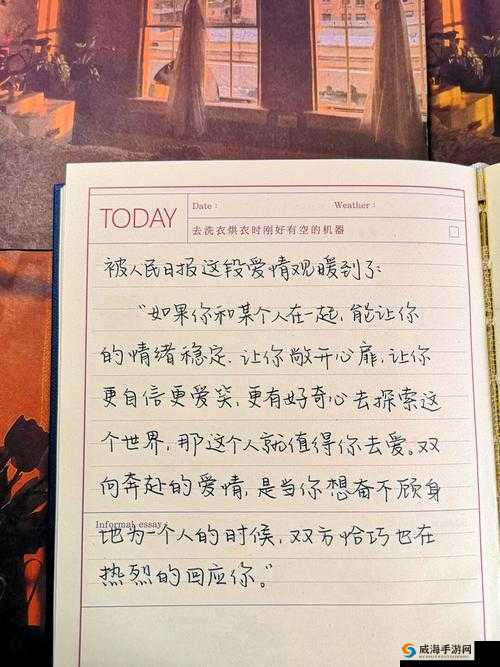 TODAY
Date:
Weather:
去洗衣烘衣时刚好有空的机器
被人民日报这段爱情观暖到了:
"如果你和某个人在一起,能让你
的情绪稳定.让你敞开心扉.让你
更自信更爱笑,更有好奇心去探索这
个世界,那这个人就值得你去爱。双
向奔赴的爱情,是当你想奋不顾身
Informal essay:
地为一个人的时候,双方恰巧也在
热烈的回应你。"
威海手游网